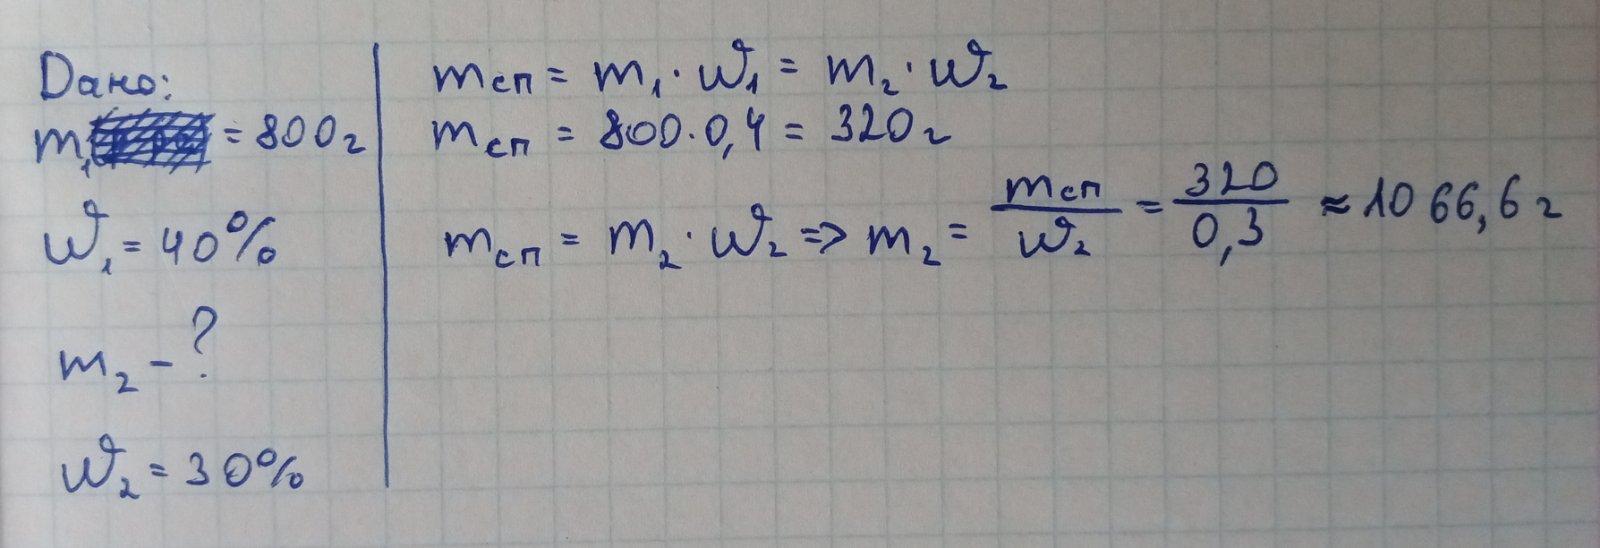 Дано:
m₁ = 800г
W₁ = 40%
m₂ - ?
W₂ = 30%
mсп = m₁ · W₁ = m₂ · W₂
mсп = 800 · 0,4 = 320г
mсп = m₂ · W₂ => m₂ = mсп / W₂ = 320 / 0,3 ≈ 1066,6г